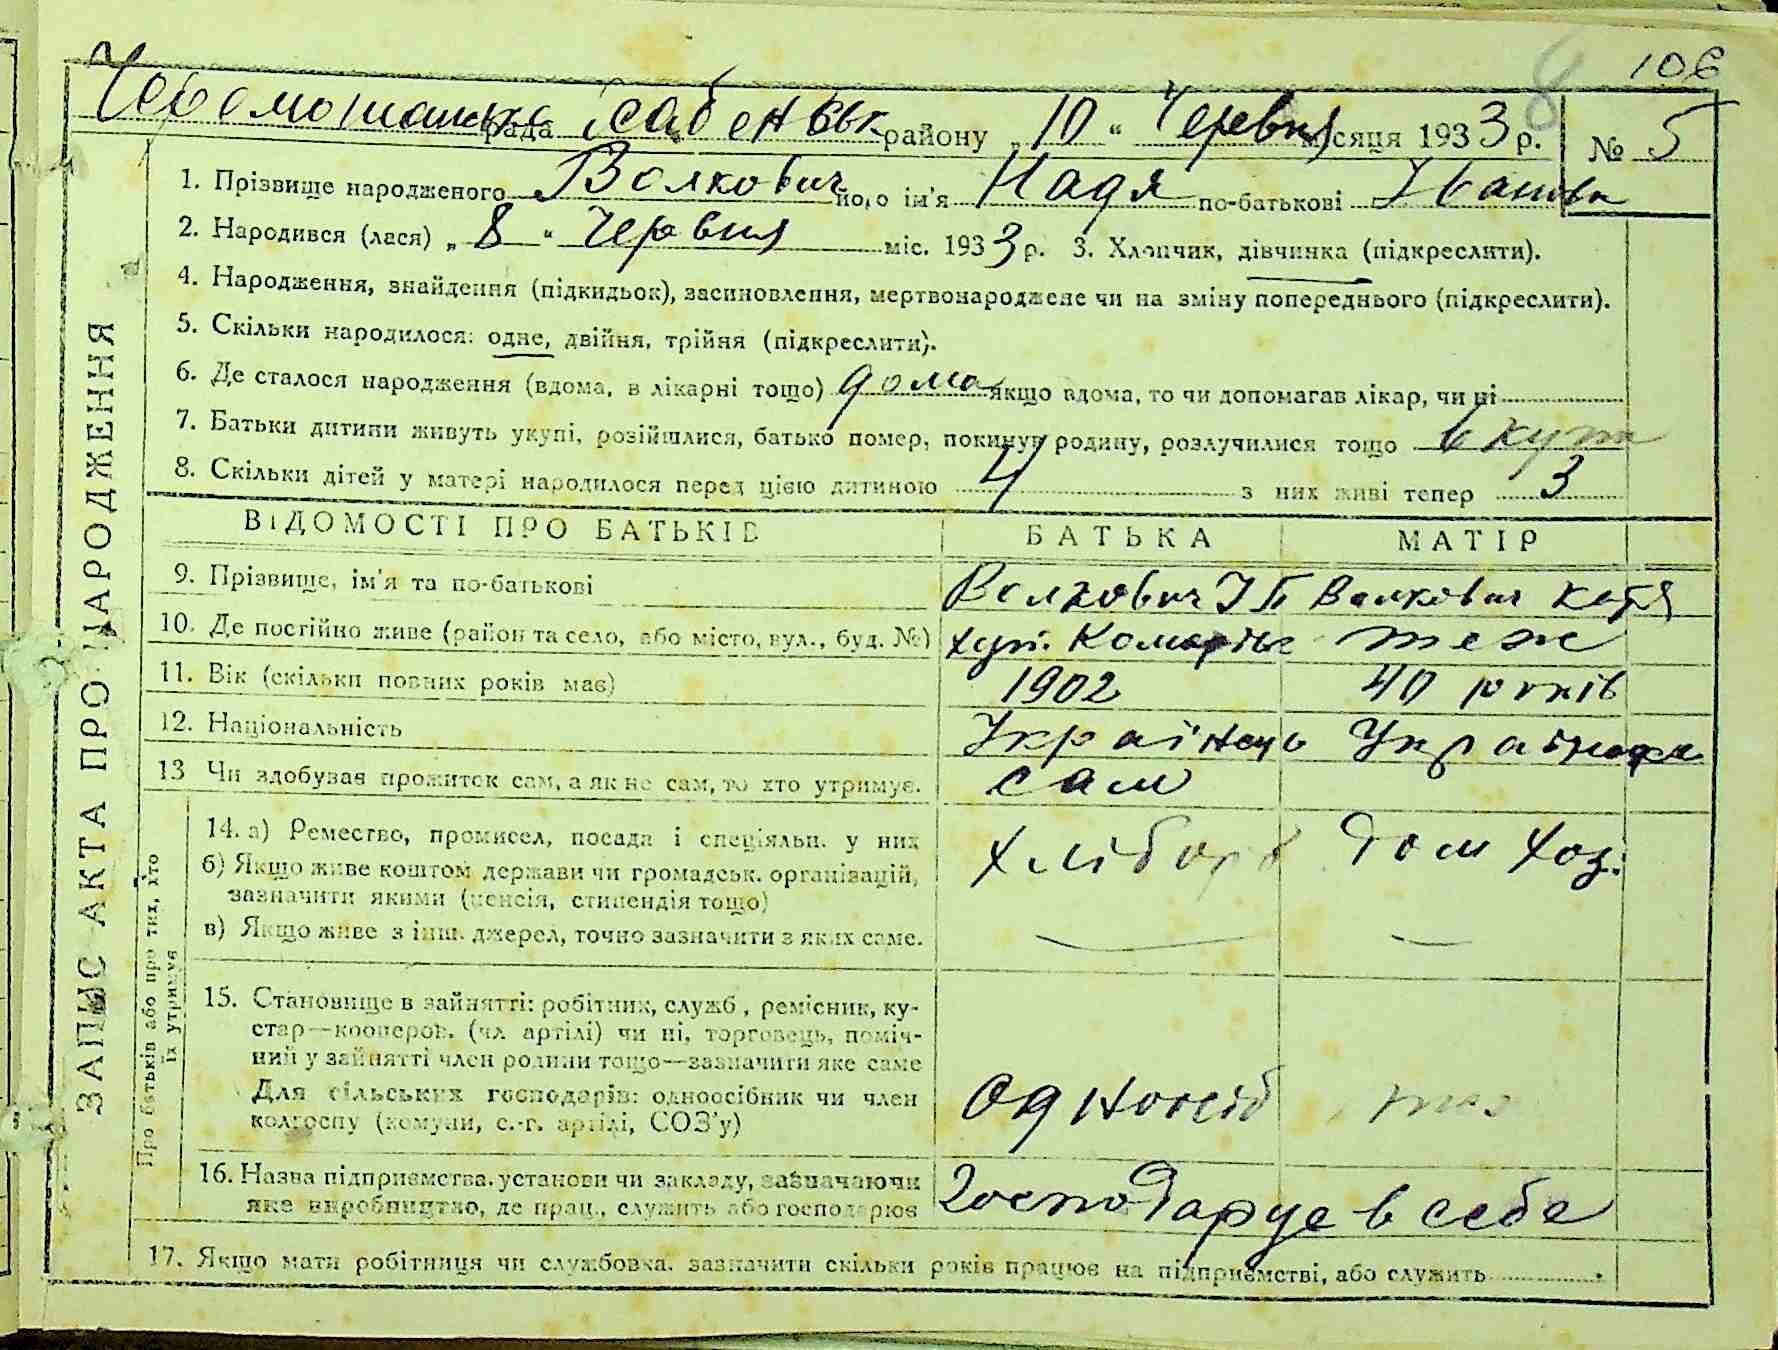 106
8
Черемошнянська рада Хабенськ району „ 10 “ Червня місяця 1933 р. № 5
1. Прізвище народженого Волкович його ім'я Надя по-батькові Іванівн
2. Народився (лася) „ 8 “ Червня міс. 1933 р. 3. Хлопчик, дівчинка (підкреслити).
4. Народження, знайдення (підкидьок), засиновлення, мертвонароджене чи на зміну попереднього (підкреслити).
5. Скільки народилося: одне, двійня, трійня (підкреслити).
6. Де сталося народження (вдома, в лікарні тощо) дома якщо вдома, то чи допомагав лікар, чи ні
7. Батьки дитини живуть укупі, розійшлися, батько помер, покинув родину, розлучилися тощо вкупі
8. Скільки дітей у матері народилося перед цією дитиною 4 з них живі тепер 3
ВІДОМОСТІ ПРО БАТЬКІВ БАТЬКА МАТІР
9. Прізвище, ім'я та по-батькові Волкович І П Волкович Катя
10. Де постійно живе (район та село, або місто, вул., буд. №) хут. теж
11. Вік (скільки повних років має) 1902 40 років
12. Національність Українець Українка
13 Чи здобував прожиток сам, а як не сам, то хто утримує. сам
14. а) Ремество, промисел, посада і спеціяльн. у них хлібороб дом хоз.
б) Якщо живе коштом держави чи громадськ. організацій,
зазначити якими (пенсія, стипендія тощо)
в) Якщо живе з інш. джерел, точно зазначити з яких саме. — —
15. Становище в зайнятті: робітник, служб., ремісник, ку-
стар—кооперов. (чл артілі) чи ні, торговець, поміч-
ний у зайнятті член родини тощо—зазначити яке саме
Для сільських господарів: одноосібник чи член
колгоспу (комуни, с.-г. артілі, СОЗ'у) Одноосіб
16. Назва підприємства, установи чи закладу, зазначаючи
яке виробництво, де прац., служить або господарює Господарує в себе
17. Якщо мати робітниця чи службовка, зазначити скільки років працює на підприємстві, або служить
ЗАПИС АКТА ПРО НАРОДЖЕННЯ
Про батьків або про тих, хто
їх утримує